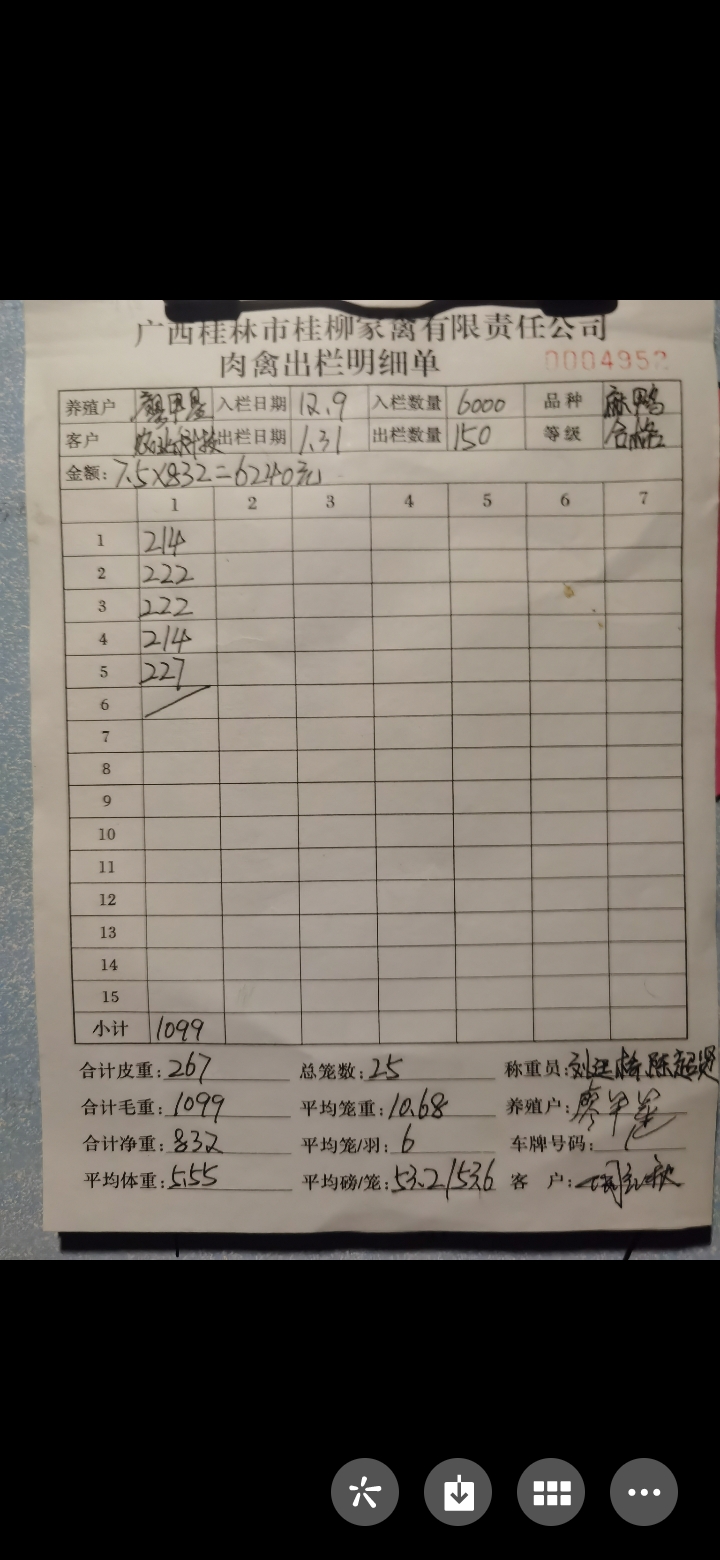 广西桂林市桂柳家禽有限责任公司
肉禽出栏明细单 0004952
养殖户 入栏日期 12.9 入栏数量 6000 品种 麻鸭
客户 农业科技 出栏日期 1.31 出栏数量 150 等级 合格
金额: 7.5×832=6240元
1 2 3 4 5 6 7
1 214
2 222
3 222
4 214
5 227
6
7
8
9
10
11
12
13
14
15
小计 1099
合计皮重: 267 总笼数: 25 称重员:
合计毛重: 1099 平均笼重: 10.68 养殖户:
合计净重: 832 平均笼/羽: 6 车牌号码:
平均体重: 5.55 平均磅/笼: 53.2/53.6 客 户: